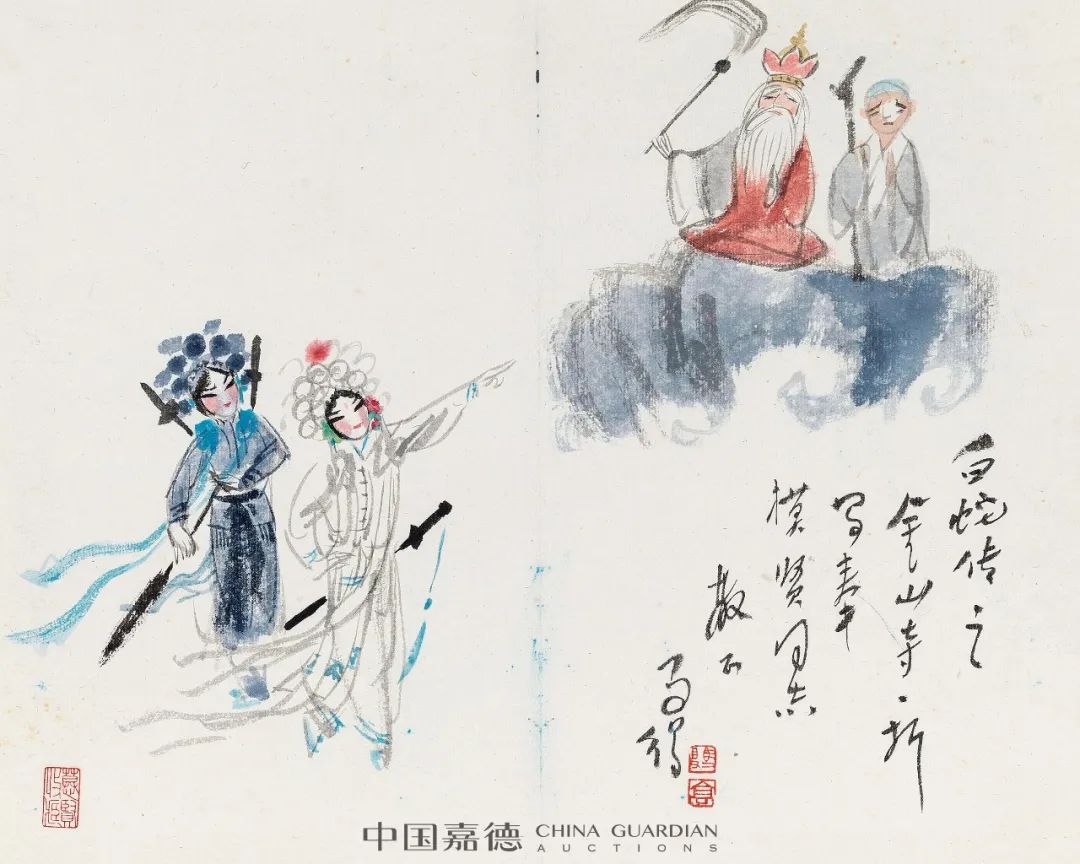 白蛇传之
金山寺一折
写奉
模贤同志
教正
马得
中国嘉德 CHINA GUARDIAN
AUCTIONS